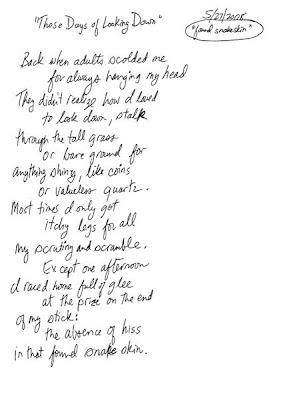 "Those Days of Looking Down"
5/27/2008
"found snakeskin"
Back when adults scolded me
for always hanging my head
They didn't realize how I loved
to look down, stalk
through the tall grass
or bare ground for
anything shiny, like coins
or valueless quartz.
Most times I only got
itchy legs for all
my scrutiny and scramble.
Except one afternoon
I raced home full of glee
at the prize on the end
of my stick:
the absence of hiss
in that found snake skin.